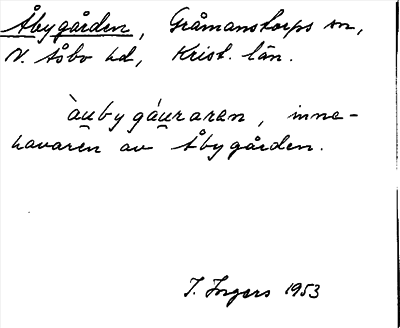 Åbygården, Gråmanstorps sn,
N. Åsbo hd, Krist. län.
àu̯bygáu̯raren, inne-
havaren av Åbygården.
I. Ingers 1953